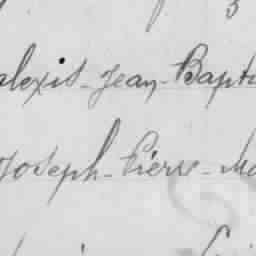 alexis-Jean-Bapti
Joseph-Pierre-Ma